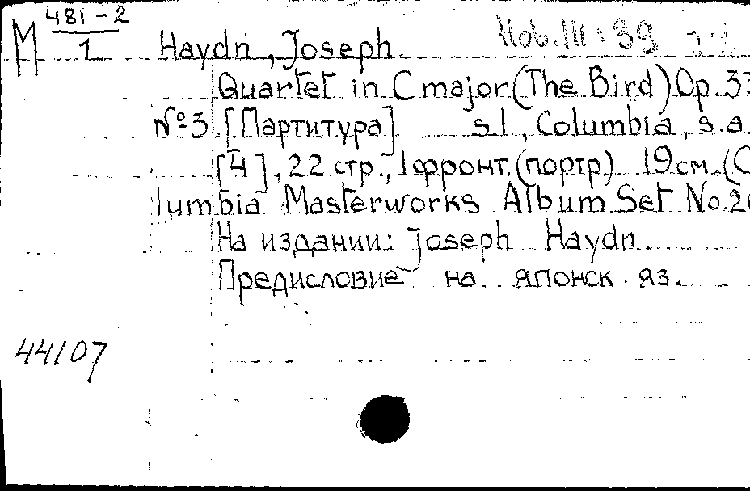 M 481-2
1
Haydn, Joseph
Quartet in C major (The Bird) Op. 33
№ 3. [Партитура] s.l., Columbia, s.a.
[4], 22 стр., 1 фронт. (портр) 19 см. (Co
lumbia Masterworks Album Set No. 2
На издании: Joseph Haydn
Предисловие на японск. яз.
44107